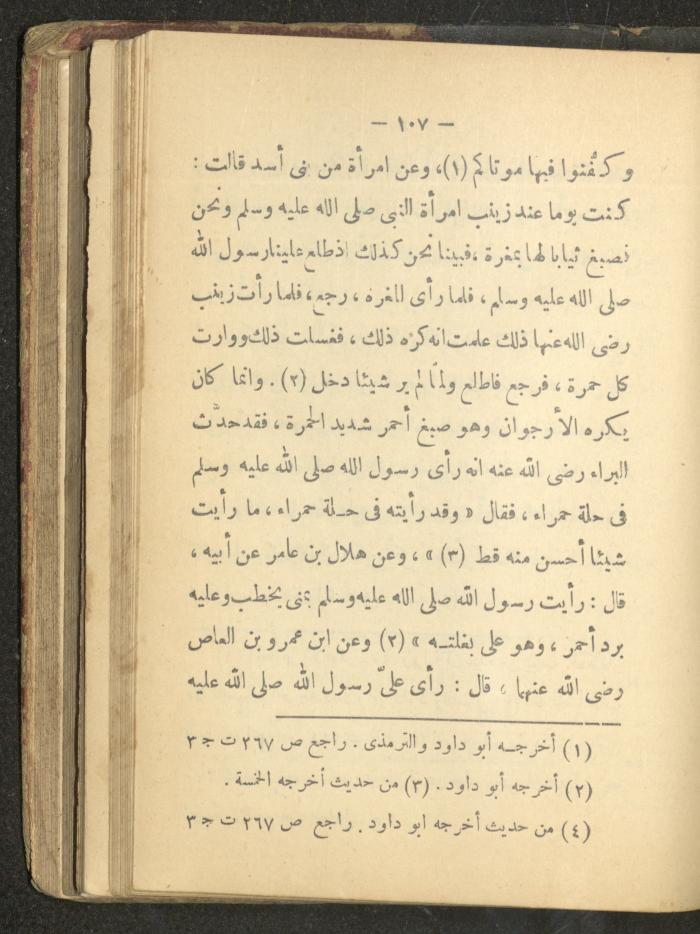 — ١٠٧ —
وكفّنوا فيها موتاكم (١)، وعن امرأة من بنى أسد قالت :
كنت يوما عند زينب امرأة النبى صلى الله عليه وسلم ونحن
نصبغ ثيابا لها بمغرة ، فبينا نحن كذلك اذ طلع علينا رسول الله
صلى الله عليه وسلم ، فلما رأى المغره ، رجع ، فلما رأت زينب
رضى الله عنها ذلك علمت انه كره ذلك ، فغسلت ذلك ووارت
كل حمرة ، فرجع فاطلع ولمّا لم ير شيئا دخل (٢) . وانما كان
يكره الأرجوان وهو صبغ أحمر شديد الحمرة ، فقد حدّث
البراء رضى الله عنه انه رأى رسول الله صلى الله عليه وسلم
فى حلة حمراء ، فقال « وقد رأيته فى حلة حمراء ، ما رأيت
شيئا أحسن منه قط (٣) » ، وعن هلال بن عامر عن أبيه ،
قال : رأيت رسول الله صلى الله عليه وسلم بمنى يخطب وعليه
برد أحمر ، وهو على بغلته » (٢) وعن ابن عمرو بن العاص
رضى الله عنهما ، قال : رأى علىّ رسول الله صلى الله عليه
(١) أخرجه أبو داود والترمذى . راجع ص ٢٦٧ ت ج ٣
(٢) أخرجه أبو داود . (٣) من حديث أخرجه الخمسة .
(٤) من حديث أخرجه ابو داود . راجع ص ٢٦٧ ت ج ٣